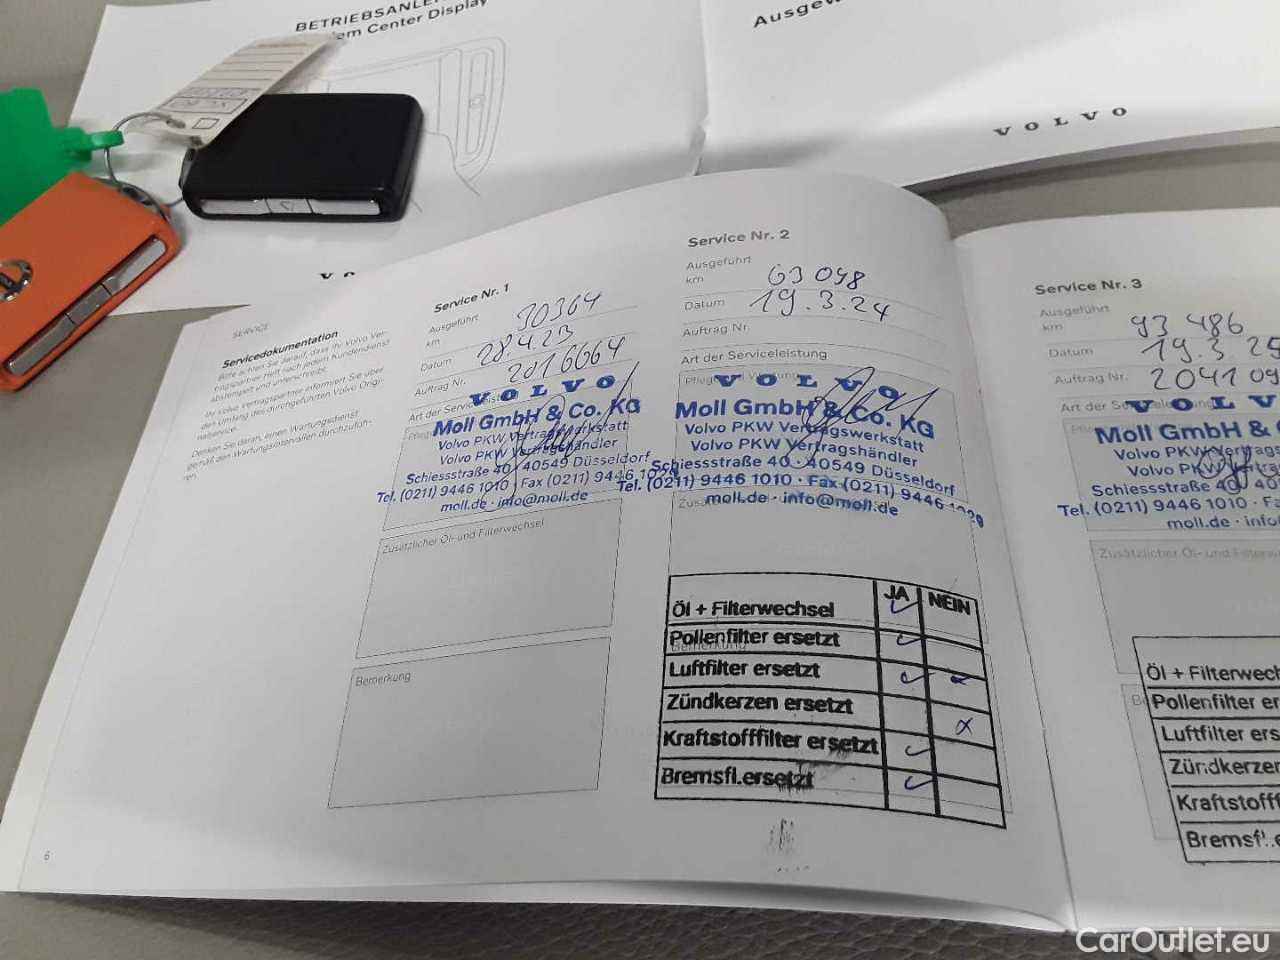 BETRIEBSANLE
em Center Display
VOLVO
SERVICE
Servicedokumentation
Bitte achten Sie darauf, dass Ihr Volvo Ver-
tragspartner Heft nach jedem Kundendienst
abstempelt und unterschreibt.
Ihr Volvo Vertragspartner informiert Sie über
den Umfang des durchgeführten Volvo Origi-
nalservice.
Denken Sie daran, einen Wartungsdienst
gemäß den Wartungsintervallen durchzufüh-
ren.
6
Service Nr. 1
Ausgeführt
km 30364
Datum 28.4.23
Auftrag Nr. 2016664
Art der Serviceleistung
VOLVO
Moll GmbH & Co. KG
Volvo PKW Vertragswerkstatt
Volvo PKW Vertragshändler
Schiessstraße 40 · 40549 Düsseldorf
Tel. (0211) 9446 1010 · Fax (0211) 9446 1029
moll.de · info@moll.de
Zusätzlicher Öl- und Filterwechsel
Bemerkung
Service Nr. 2
Ausgeführt
km 63098
Datum 19.3.24
Auftrag Nr.
Art der Serviceleistung
VOLVO
Moll GmbH & Co. KG
Volvo PKW Vertragswerkstatt
Volvo PKW Vertragshändler
Schiessstraße 40 · 40549 Düsseldorf
Tel. (0211) 9446 1010 · Fax (0211) 9446 1029
moll.de · info@moll.de
JA NEIN
Öl + Filterwechsel
Pollenfilter ersetzt
Bemerkung
Luftfilter ersetzt
Zündkerzen ersetzt
Kraftstofffilter ersetzt
Bremsfl.ersetzt
Service Nr. 3
Ausgeführt
km 93 486
Datum 19.3.25
Auftrag Nr. 204109
Art der Serviceleistung
VOLV
Moll GmbH &
Volvo PKW Vertrags
Volvo PKW Vertra
Schiessstraße 40 · 40
Tel. (0211) 9446 1010 · Fa
moll.de · info
Zusätzlicher Öl- und Filterwe
Öl + Filterwech
Pollenfilter er
Luftfilter ers
Zündkerzen
Kraftstofff
Bremsfl.e
CarOutlet.eu